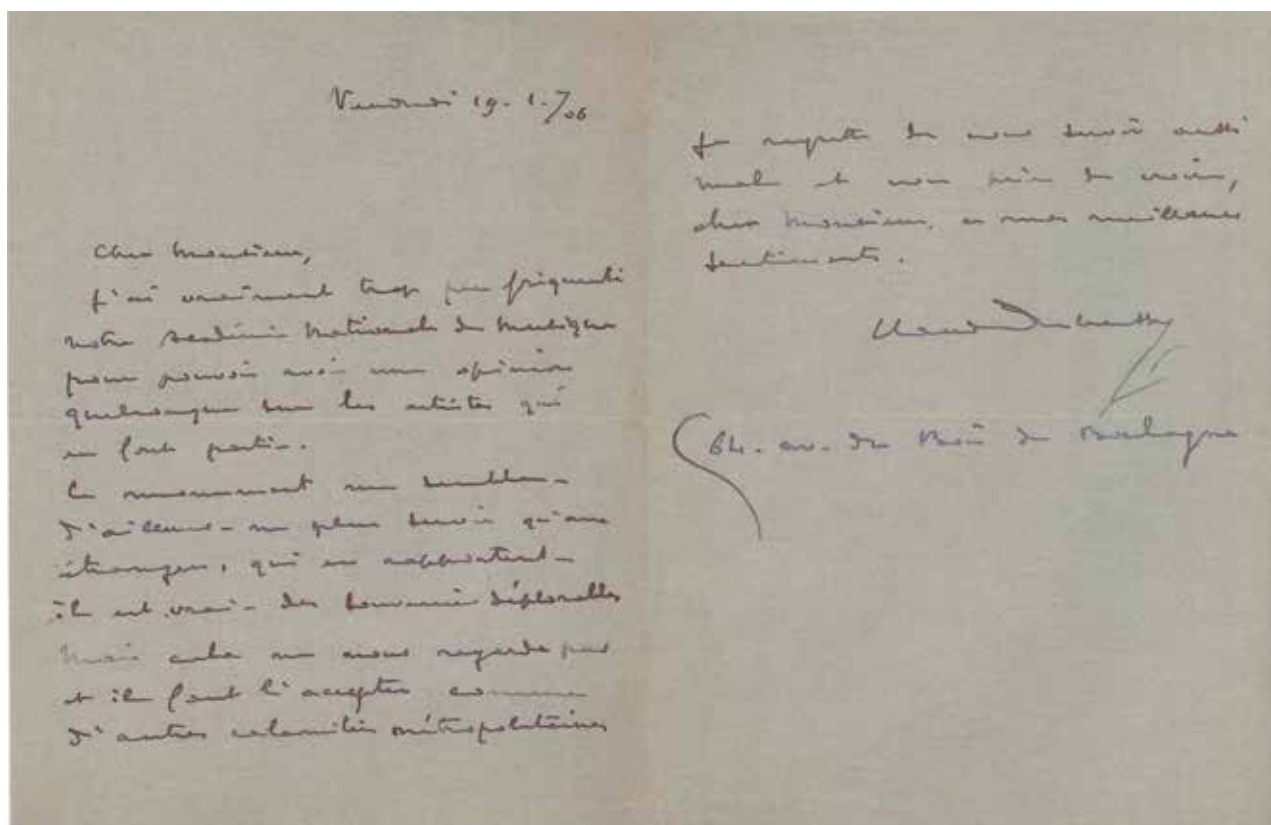 Vendredi 19. 1. /06
Cher Monsieur,
J'ai vraiment trop peu fréquenté
notre Académie Nationale de Musique
pour pouvoir avoir une opinion
quelconque sur les artistes qui
en font partie.
Ce monument me semble -
d'ailleurs - ne plus servir qu'aux
étrangers, qui en rapportent -
il est vrai - des souvenirs déplorables
Mais cela ne nous regarde pas
et il faut l'accepter comme
d'autres calamités métropolitaines
Je regrette de vous servir aussi
mal et vous prie de croire,
cher Monsieur, à mes meilleurs
sentiments.
Claude Debussy
64. av. du Bois de Boulogne